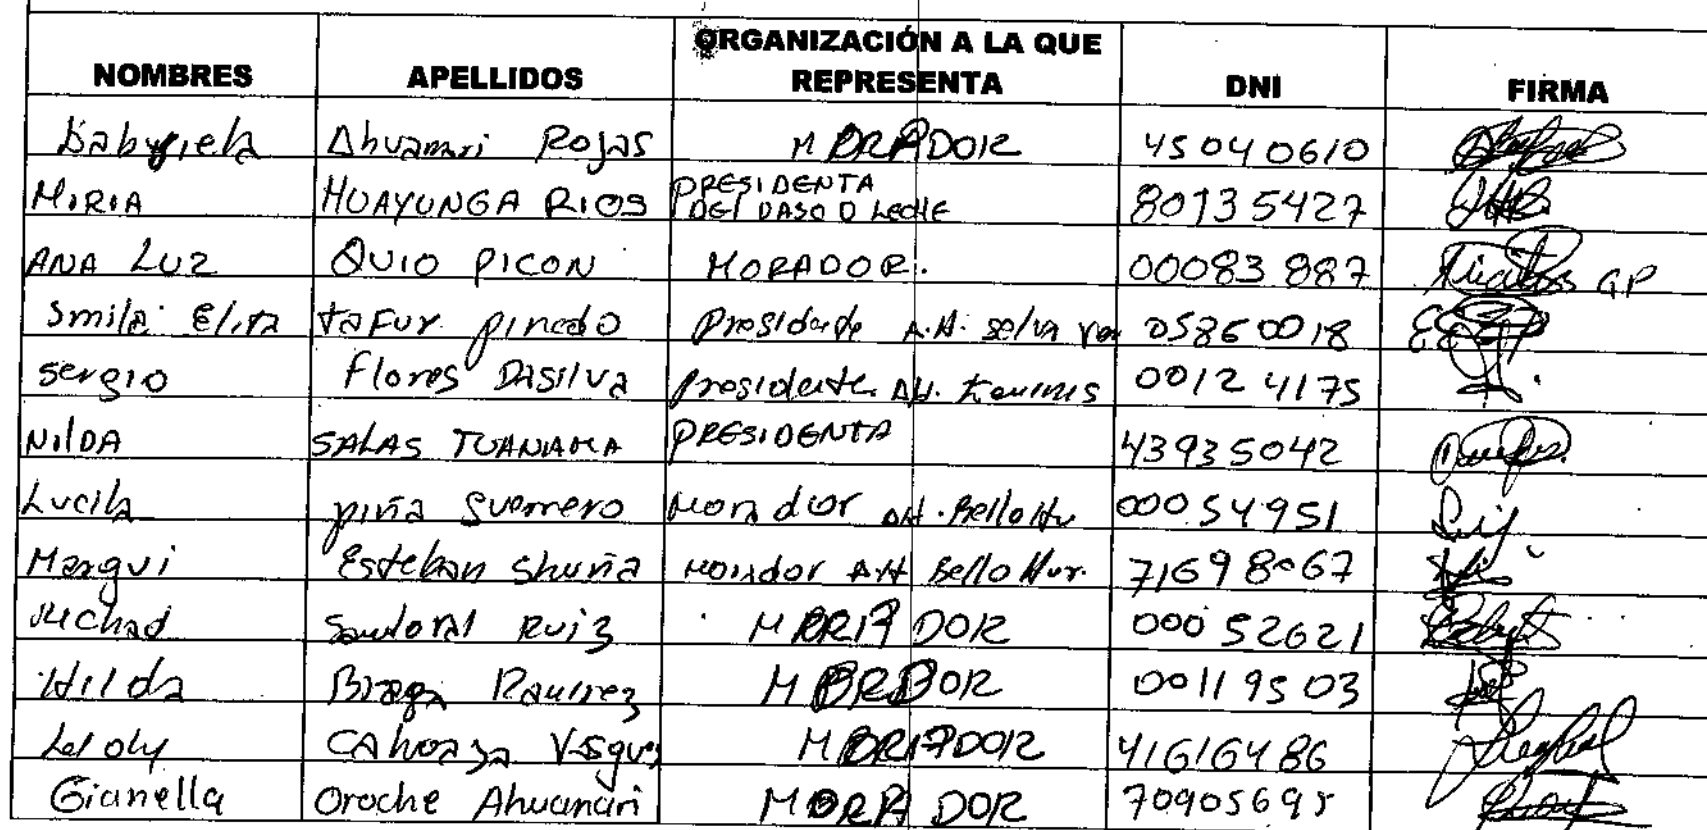 NOMBRES APELLIDOS ORGANIZACIÓN A LA QUE REPRESENTA DNI FIRMA
Gabyriela Ahuanari Rojas MORADOR 45040610
MIRIA HUAYUNGA RIOS PRESIDENTA DEL VASO D LECHE 80135427
ANA LUZ QUIO PICON MORADOR. 00083887 GP
Smila Elita tafur pinedo Presidente A.H. selva 05860018
Sergio Flores Dasilva Presidente AH. 00124175
NILDA SALAS TUANAMA PRESIDENTA 43935042
Lucila piña Guerrero Morador AH. Bello 00054951
Margui Esteban Shuña Morador AH Bello Hor. 71698067
Michad Sandoval Ruiz MORADOR 00052621
Hilda Braga Ramirez MORADOR 00119503
Leidy Cahuaza Vasquez MORADOR 41616486
Gianella Oroche Ahuanari MORADOR 70905695